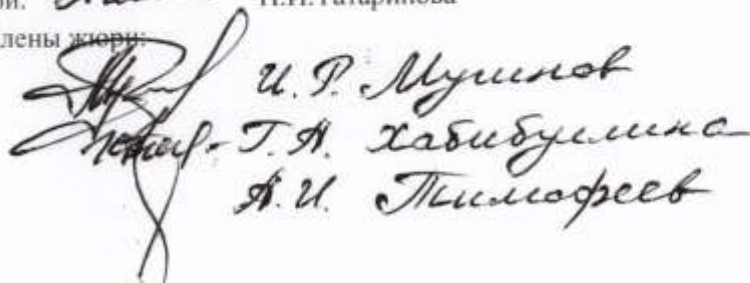 Н.И.Татаринова
лены жюри:
И. Р. Муминов
Г. А. Хабибуллина
А. И. Тимофеев